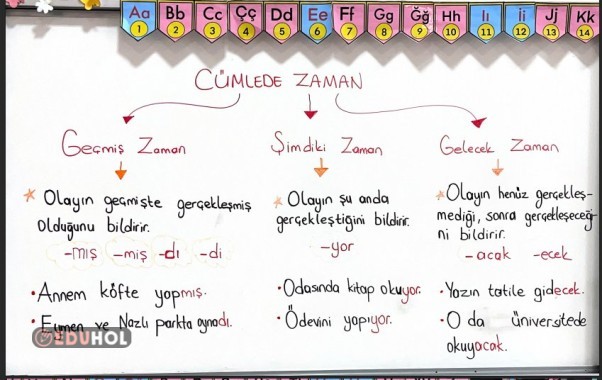 Aa Bb Cc Çç Dd Ee Ff Gg Ğğ Hh Iı İi Jj Kk
1 2 3 4 5 6 7 8 9 10 11 12 13 14
CÜMLEDE ZAMAN
Geçmiş Zaman
Olayın geçmişte gerçekleşmiş
olduğunu bildirir.
-mış -miş -dı -di
Annem köfte yapmış.
ve Nazlı parkta oynadı.
EDUHOL
Şimdiki Zaman
Olayın şu anda
gerçekleştiğini bildirir.
-yor
Odasında kitap okuyor.
Ödevini yapıyor.
Gelecek Zaman
Olayın henüz gerçekleş-
mediği, sonra gerçekleşeceği-
ni bildirir.
-acak -ecek
Yazın tatile gidecek.
O da üniversitede
okuyacak.